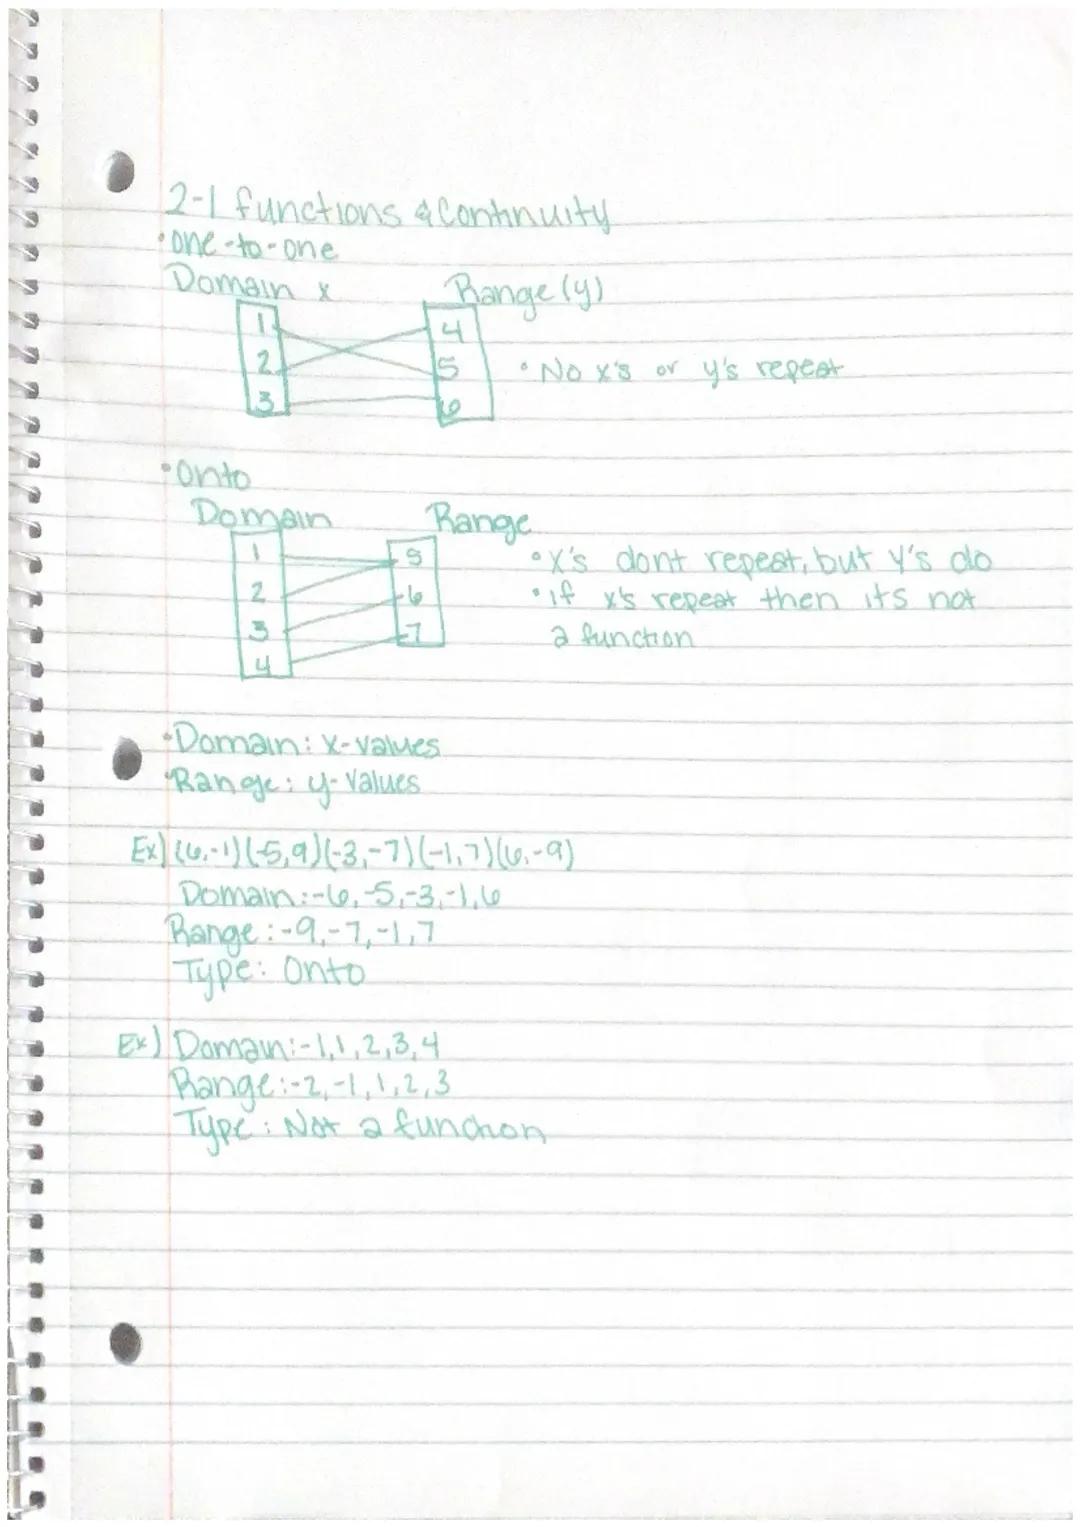 2-1 functions & Continuity
• one-to-one
Domain x Range (y)
1 4
2 5 • No x's or y's repeat
3 6
• Onto
Domain Range
1 5 • X's dont repeat, but y's do
2 6 • if x's repeat then its not
3 7 a function
4
• Domain: x-values
• Range: y-values
Ex) (6,-1)(-5,9)(-3,-7)(-1,7)(6,-9)
Domain:-6,-5,-3,-1,6
Range:-9,-7,-1,7
Type: Onto
Ex) Domain:-1,1,2,3,4
Range:-2,-1,1,2,3
Type: Not a function